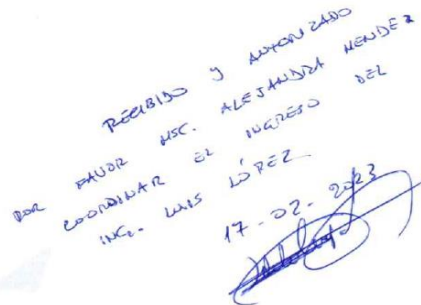 RECIBIDO Y AUTORIZADO
POR FAVOR MSC. ALEJANDRA MENDEZ
COORDINAR EL INGRESO DEL
ING. LUIS LÓPEZ
17-02-2023